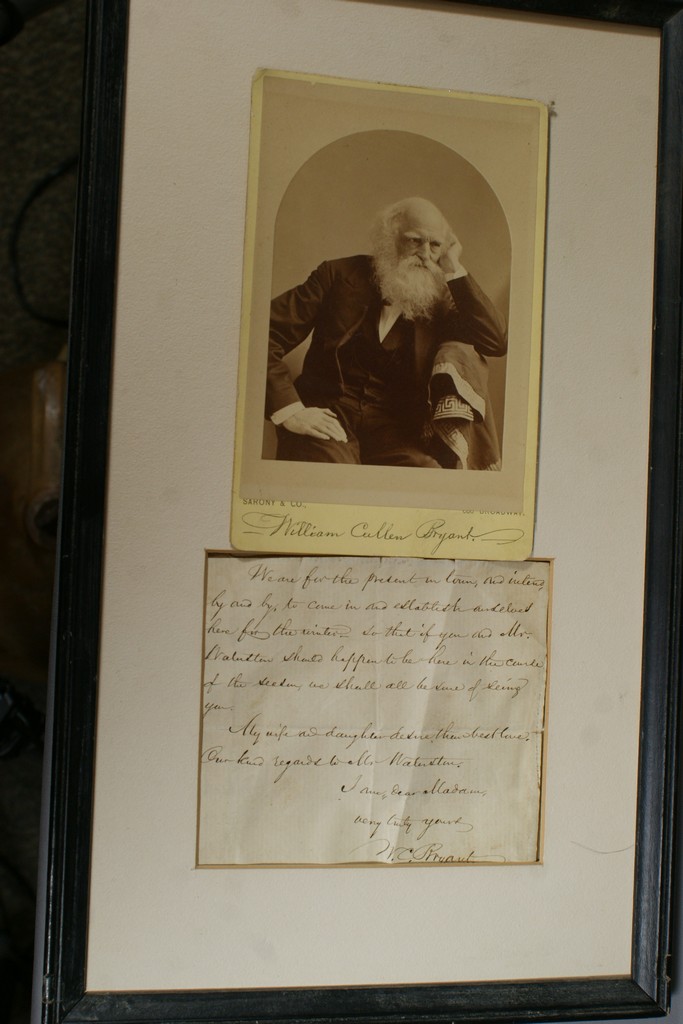 SARONY & CO.,
680 BROADWAY.
William Cullen Bryant.
We are for the present in town, and intend,
by and by, to come in and establish ourselves
here for the winter so that if you and Mr.
Waterston should happen to be here in the course
of the season, we shall all be sure of seeing
you.
My wife and daughter desire their best love.
Our kind regards to Mr Waterston.
I am, dear Madam,
very truly yours
W. C. Bryant